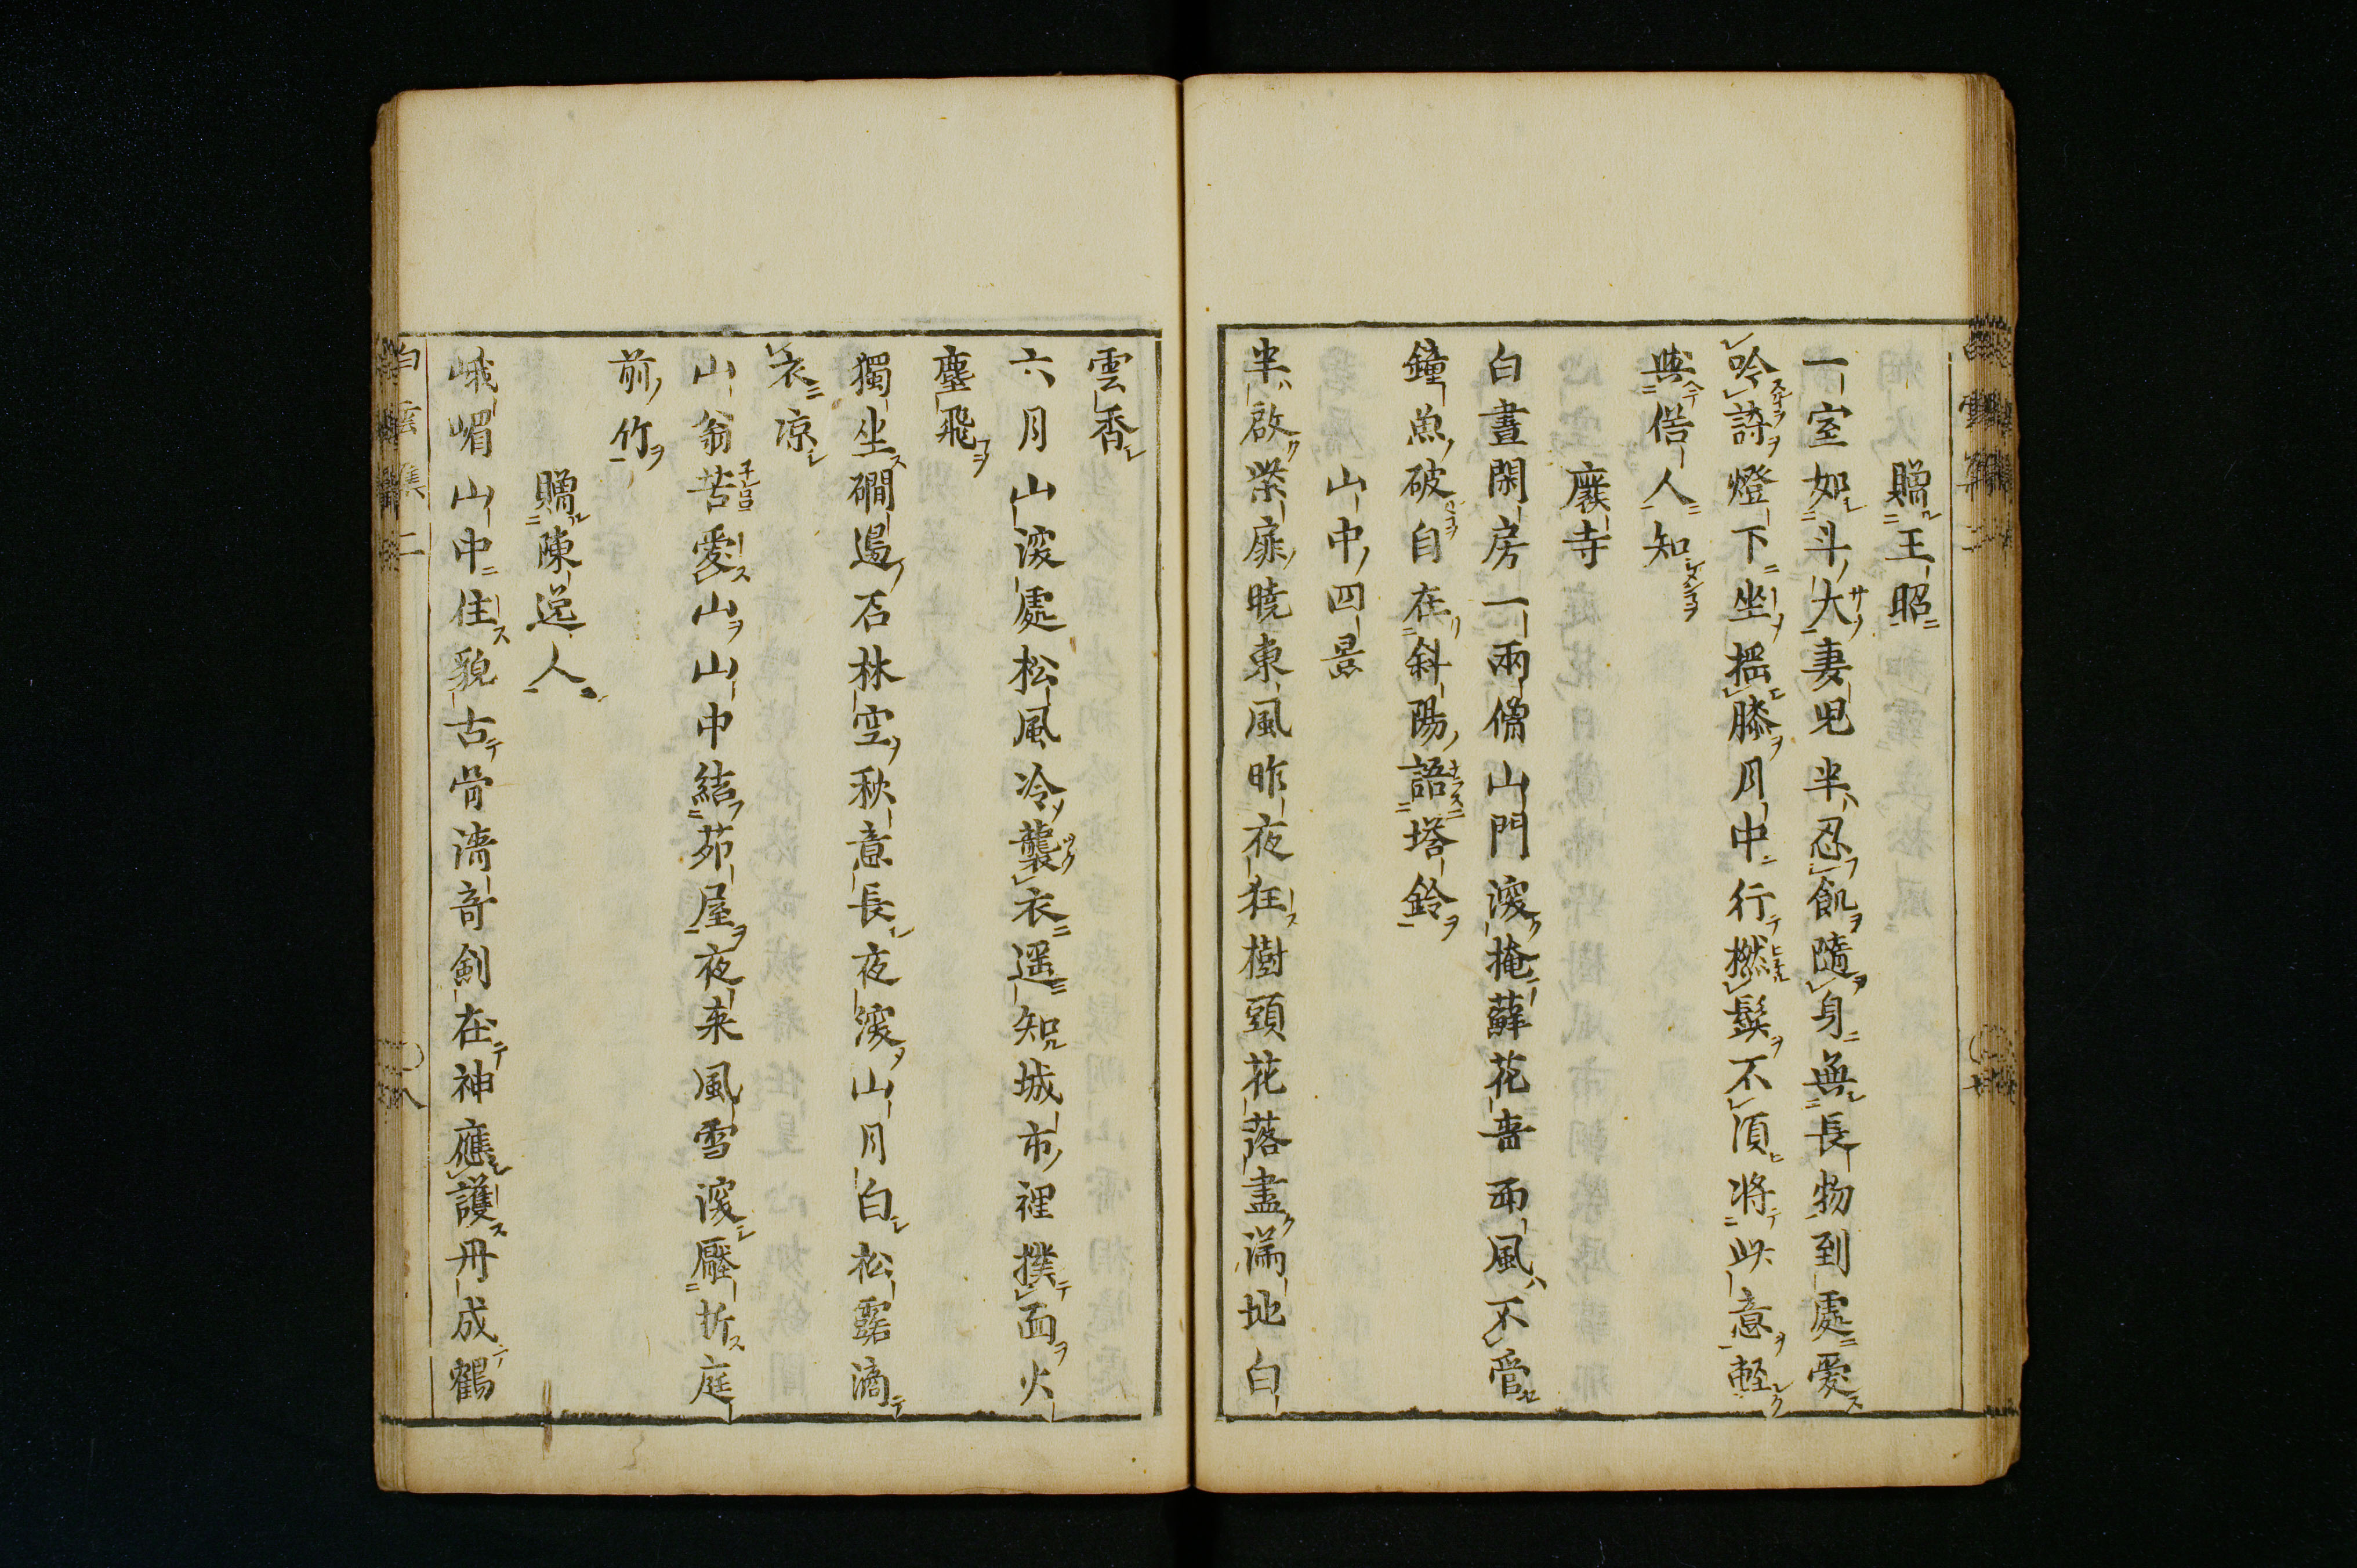 贈王昭
一室如斗大妻児半忍飢隨身無長物到處愛
吟詩燈下坐揺膝月中行撚鬚不湏將此意輕
與俗人知
廢寺
白晝閑房一兩僧山門深掩蘚花香西風不管
鐘魚破自在斜陽語塔鈴
山中四景
半啟柴扉曉東風昨夜狂樹頭花落盡滿地白
雲香
六月山深處松風冷襲衣遥知城市裡撲面火
塵飛
獨坐磵邊石林空秋意長夜深山月白松露滴
衣凉
山翁苦愛山山中結茆屋夜来風雪深壓折庭
前竹
贈陳逸人
峨嵋山中住貌古骨清奇劍在神應護丹成鶴
白雲集二
八